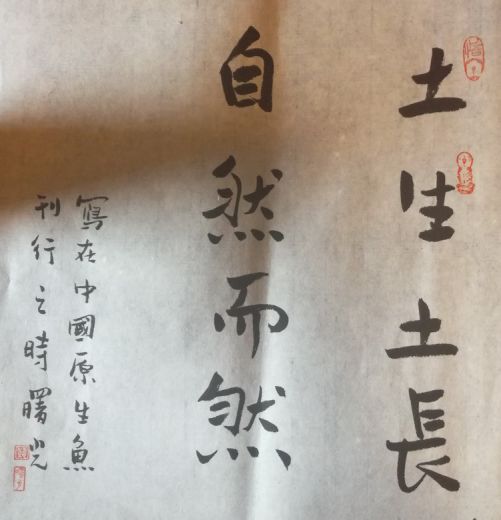 土生土長
自然而然
寫在中國原生魚
刊行之時曙光